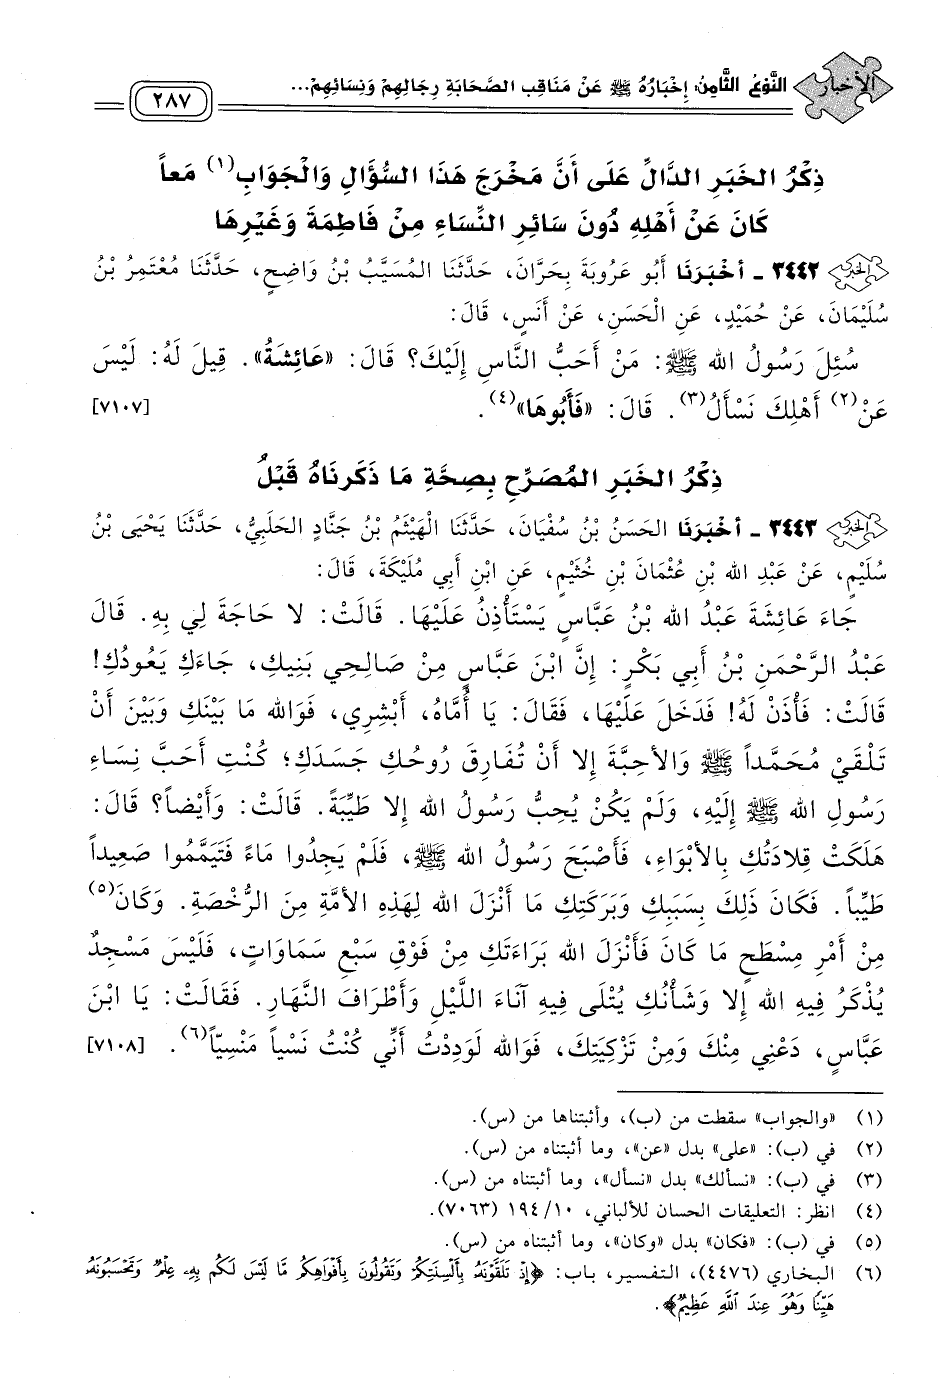 الأخبار
النَّوْعُ الثَّامِنُ: إِخْبَارُهُ ﷺ عَنْ مَنَاقِبِ الصَّحَابَةِ رِجَالِهِمْ وَنِسَائِهِمْ...
٢٨٧
ذِكْرُ الخَبَرِ الدَّالِّ عَلَى أَنَّ مَخْرَجَ هَذَا السُّؤَالِ وَالْجَوَابِ(١) مَعاً
كَانَ عَنْ أَهْلِهِ دُونَ سَائِرِ النِّسَاءِ مِنْ فَاطِمَةَ وَغَيْرِهَا
الخبر ٣٤٤٢ ـ أخْبَرَنَا أَبُو عَرُوبَةَ بِحَرَّانَ، حَدَّثَنَا المُسَيَّبُ بْنُ وَاضِحٍ، حَدَّثَنَا مُعْتَمِرُ بْنُ
سُلَيْمَانَ، عَنْ حُمَيْدٍ، عَنِ الْحَسَنِ، عَنْ أَنَسٍ، قَالَ:
سُئِلَ رَسُولُ الله ﷺ: مَنْ أَحَبُّ النَّاسِ إِلَيْكَ؟ قَالَ: «عَائِشَةُ». قِيلَ لَهُ: لَيْسَ
عَنْ(٢) أَهْلِكَ نَسْأَلُ(٣). قَالَ: «فَأَبُوهَا»(٤). [٧١٠٧]
ذِكْرُ الخَبَرِ المُصَرِّحِ بِصِحَّةِ مَا ذَكَرنَاهُ قَبْلُ
الخبر ٣٤٤٣ ـ أخْبَرَنَا الحَسَنُ بْنُ سُفْيَانَ، حَدَّثَنَا الْهَيْثَمُ بْنُ جَنَّادٍ الحَلَبِيُّ، حَدَّثَنَا يَحْيَى بْنُ
سُلَيْمٍ، عَنْ عَبْدِ الله بْنِ عُثْمَانَ بْنِ خُثَيْمٍ، عَنِ ابْنِ أَبِي مُلَيْكَةَ، قَالَ:
جَاءَ عَائِشَةَ عَبْدُ الله بْنُ عَبَّاسٍ يَسْتَأْذِنُ عَلَيْهَا. قَالَتْ: لا حَاجَةَ لِي بِهِ. قَالَ
عَبْدُ الرَّحْمَنِ بْنُ أَبِي بَكْرٍ: إِنَّ ابْنَ عَبَّاسٍ مِنْ صَالِحِي بَنِيكِ، جَاءَكِ يَعُودُكِ!
قَالَتْ: فَأْذَنْ لَهُ! فَدَخَلَ عَلَيْهَا، فَقَالَ: يَا أُمَّاهُ، أَبْشِرِي، فَوَالله مَا بَيْنَكِ وَبَيْنَ أَنْ
تَلْقَيْ مُحَمَّداً ﷺ وَالأحِبَّةَ إِلا أَنْ تُفَارِقَ رُوحُكِ جَسَدَكِ؛ كُنْتِ أَحَبَّ نِسَاءِ
رَسُولِ الله ﷺ إِلَيْهِ، وَلَمْ يَكُنْ يُحِبُّ رَسُولُ الله إِلا طَيِّبَةً. قَالَتْ: وَأَيْضاً؟ قَالَ:
هَلَكَتْ قِلادَتُكِ بِالأبْوَاءِ، فَأَصْبَحَ رَسُولُ الله ﷺ، فَلَمْ يَجِدُوا مَاءً فَتَيَمَّمُوا صَعِيداً
طَيِّباً. فَكَانَ ذَلِكَ بِسَبَبِكِ وَبَرَكَتِكِ مَا أَنْزَلَ الله لِهَذِهِ الأمَّةِ مِنَ الرُّخْصَةِ. وَكَانَ(٥)
مِنْ أَمْرِ مِسْطَحٍ مَا كَانَ فَأَنْزَلَ الله بَرَاءَتَكِ مِنْ فَوْقِ سَبْعِ سَمَاوَاتٍ، فَلَيْسَ مَسْجِدٌ
يُذْكَرُ فِيهِ الله إِلا وَشَأْنُكِ يُتْلَى فِيهِ آنَاءَ اللَّيْلِ وَأَطْرَافَ النَّهَارِ. فَقَالَتْ: يَا ابْنَ
عَبَّاسٍ، دَعْنِي مِنْكَ وَمِنْ تَزْكِيَتِكَ، فَوَالله لَوَدِدْتُ أَنِّي كُنْتُ نَسْياً مَنْسِيّاً(٦). [٧١٠٨]
(١) «والجواب» سقطت من (ب)، وأثبتناها من (س).
(٢) في (ب): «على» بدل «عن»، وما أثبتناه من (س).
(٣) في (ب): «نسألك» بدل «نسأل»، وما أثبتناه من (س).
(٤) انظر: التعليقات الحسان للألباني، ١٠/ ١٩٤ (٧٠٦٣).
(٥) في (ب): «فكان» بدل «وكان»، وما أثبتناه من (س).
(٦) البخاري (٤٤٧٦)، التفسير، باب: ﴿إِذْ تَلَقَّوْنَهُۥ بِأَلْسِنَتِكُمْ وَتَقُولُونَ بِأَفْوَاهِكُم مَّا لَيْسَ لَكُم بِهِۦ عِلْمٌ وَتَحْسَبُونَهُۥ
هَيِّنًا وَهُوَ عِندَ ٱللَّهِ عَظِيمٌ﴾.